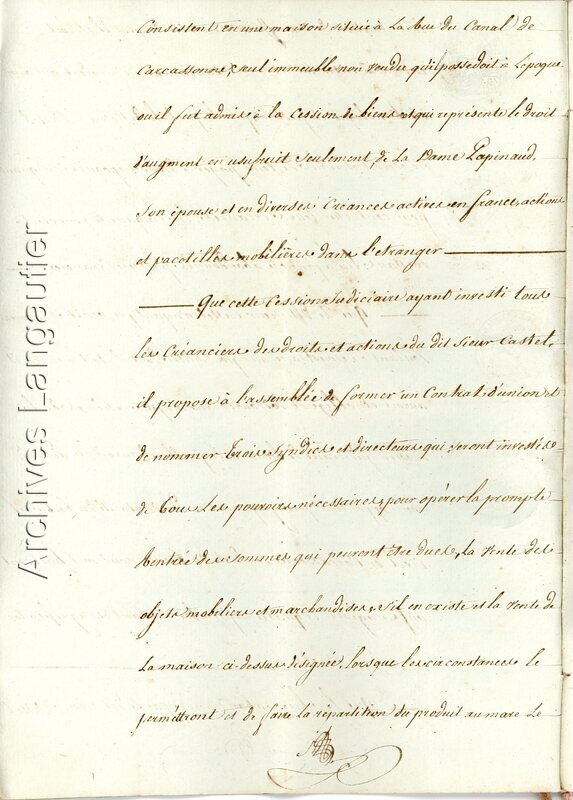 Consistent en une maison située à La Rue du Canal de
Carcassonne, seul immeuble non vendu qu'il possedoit à l'epoque
ou il fut admis à la Cession de biens et qui représente le droit
d'augment en usufruit seulement de La Dame Papinaud,
Son épouse et en diverses Créances actives en france, actions
et pacotilles mobilières dans l'etranger
Que cette Cession Judiciaire ayant investi tous
les Créanciers des droits et actions du dit Sieur Castel,
il propose à l'assemblée de former un Contrat d'union et
de nommer trois Syndics et directeurs qui seront investis
de tous Les pouvoirs nécessaires, pour opérer la prompte
Rentrée des Sommes qui peuvent être dues, La Vente des
objets mobiliers et marchandises, s'il en existe et la Vente de
La maison ci-dessus désignée, lorsque les circonstances le
permèttront et de faire la répartition du produit au marc Le
Archives Langautier